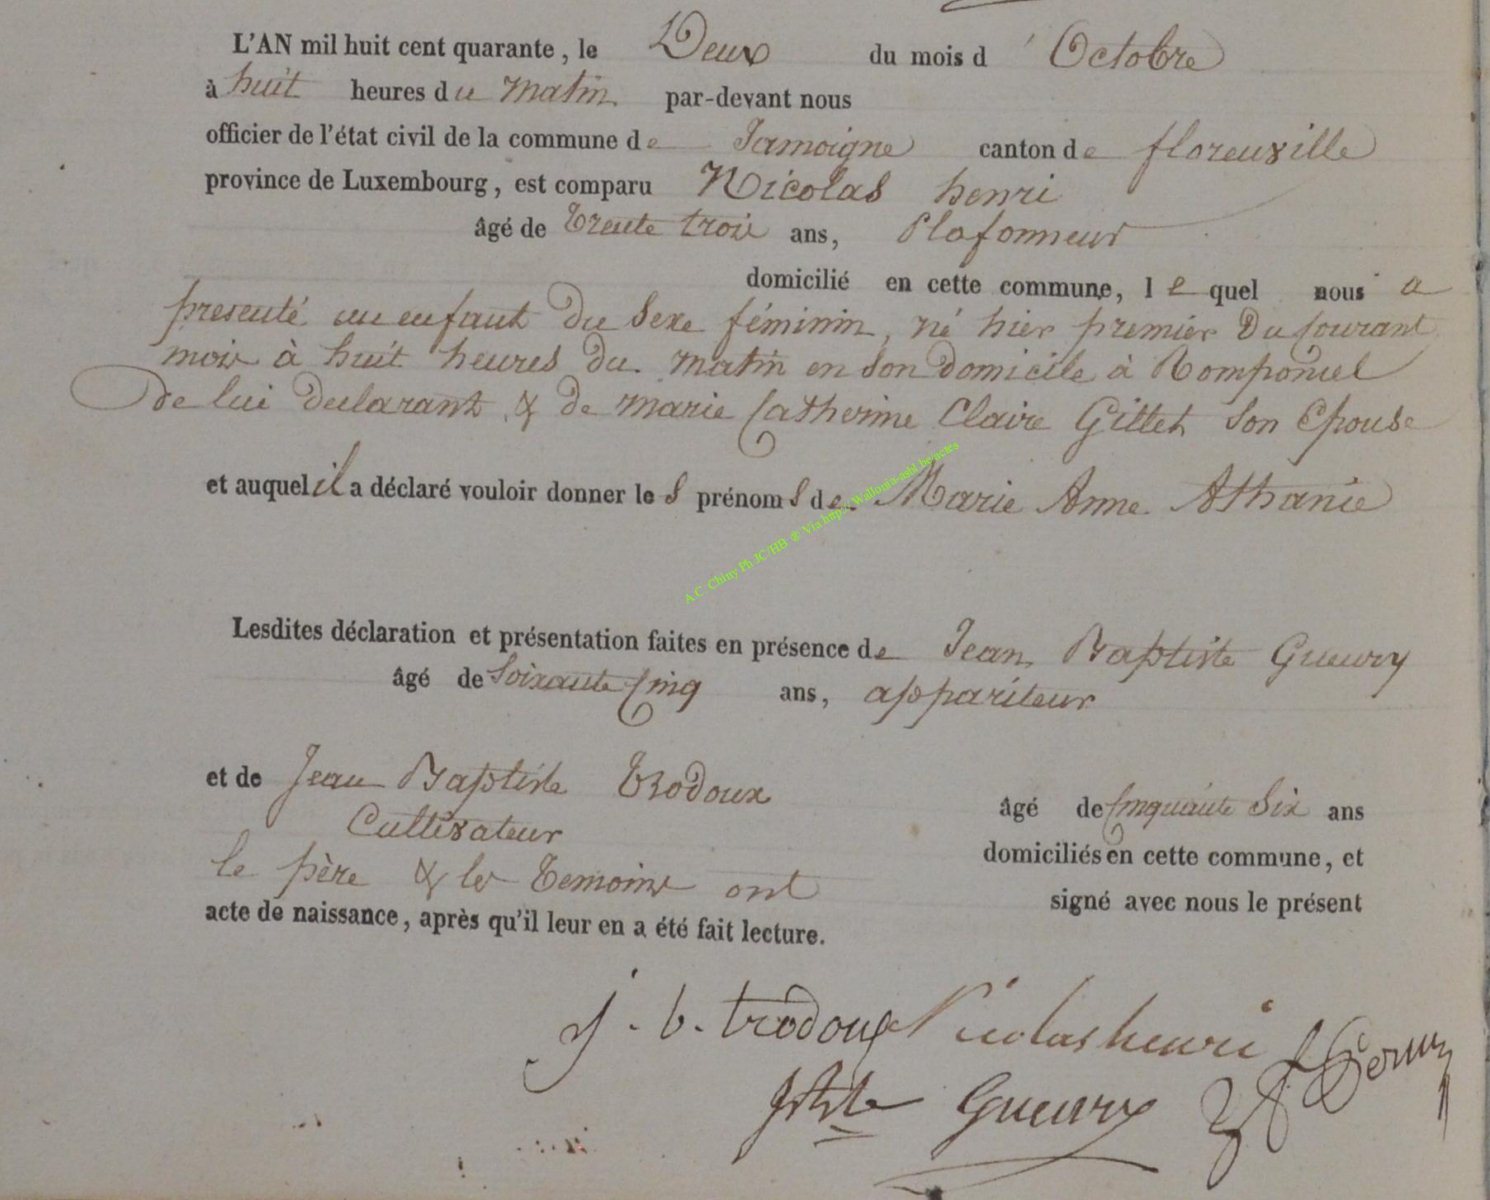 L'AN mil huit cent quarante, le Deux du mois d' Octobre
à huit heures du matin par-devant nous
officier de l'état civil de la commune de Jamoigne canton de florenville
province de Luxembourg, est comparu Nicolas henri
âgé de trente trois ans, Plafonneur
domicilié en cette commune, lequel nous a
presenté un enfant du Sexe féminin, né hier premier du courant
mois à huit heures du matin en son domicile à Romponcel
de lui declarant & de marie Catherine Claire Gillet son Epouse
et auquel il a déclaré vouloir donner les prénoms de Marie Anne Athanie
A.C. Chiny Ph JC/HB & Via http: Wallonia-asbl.be/actes
Lesdites déclaration et présentation faites en présence de Jean Baptiste Gueury
âgé de Soixante Cinq ans, appariteur
et de Jean Baptiste Trodoux âgé de Cinquante Six ans
Cultivateur
domiciliés en cette commune, et
le père & les temoins ont signé avec nous le présent
acte de naissance, après qu'il leur en a été fait lecture.
j. b. trodoux Nicolas henri
Gueury